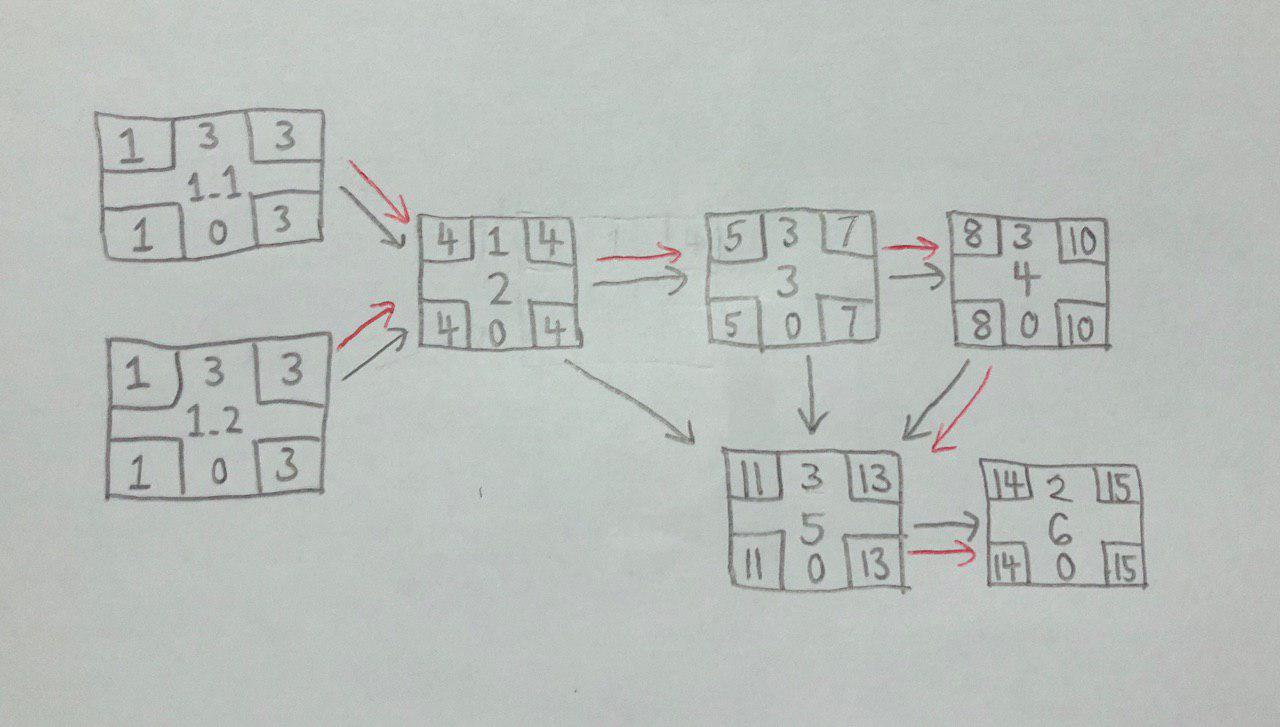 1 3 3
1.1
1 0 3
1 3 3
1.2
1 0 3
4 1 4
2
4 0 4
5 3 7
3
5 0 7
8 3 10
4
8 0 10
11 3 13
5
11 0 13
14 2 15
6
14 0 15